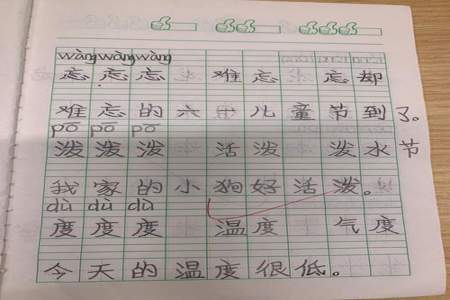 wàng wàng wàng
忘 忘 忘 难 忘 忘 却
难 忘 的 六 一 儿 童 节 到 了。
pō pō pō
泼 泼 泼 活 泼 泼 水 节
我 家 的 小 狗 好 活 泼。
dù dù dù
度 度 度 温 度 气 度
今 天 的 温 度 很 低。